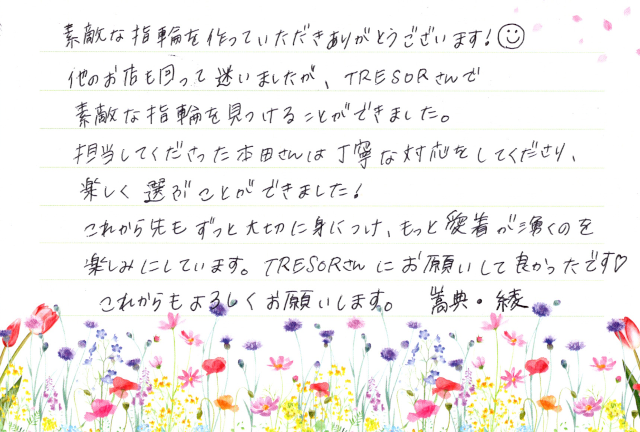 素敵な指輪を作っていただきありがとうございます!
他のお店も回って迷いましたが、TRESORさんで
素敵な指輪を見つけることができました。
担当してくださった本田さんは丁寧な対応をしてくださり、
楽しく選ぶことができました!
これから先もずっと大切に身につけ、もっと愛着が湧くのを
楽しみにしています。TRESORさんにお願いして良かったです♡
これからもよろしくお願いします。 嵩典・綾